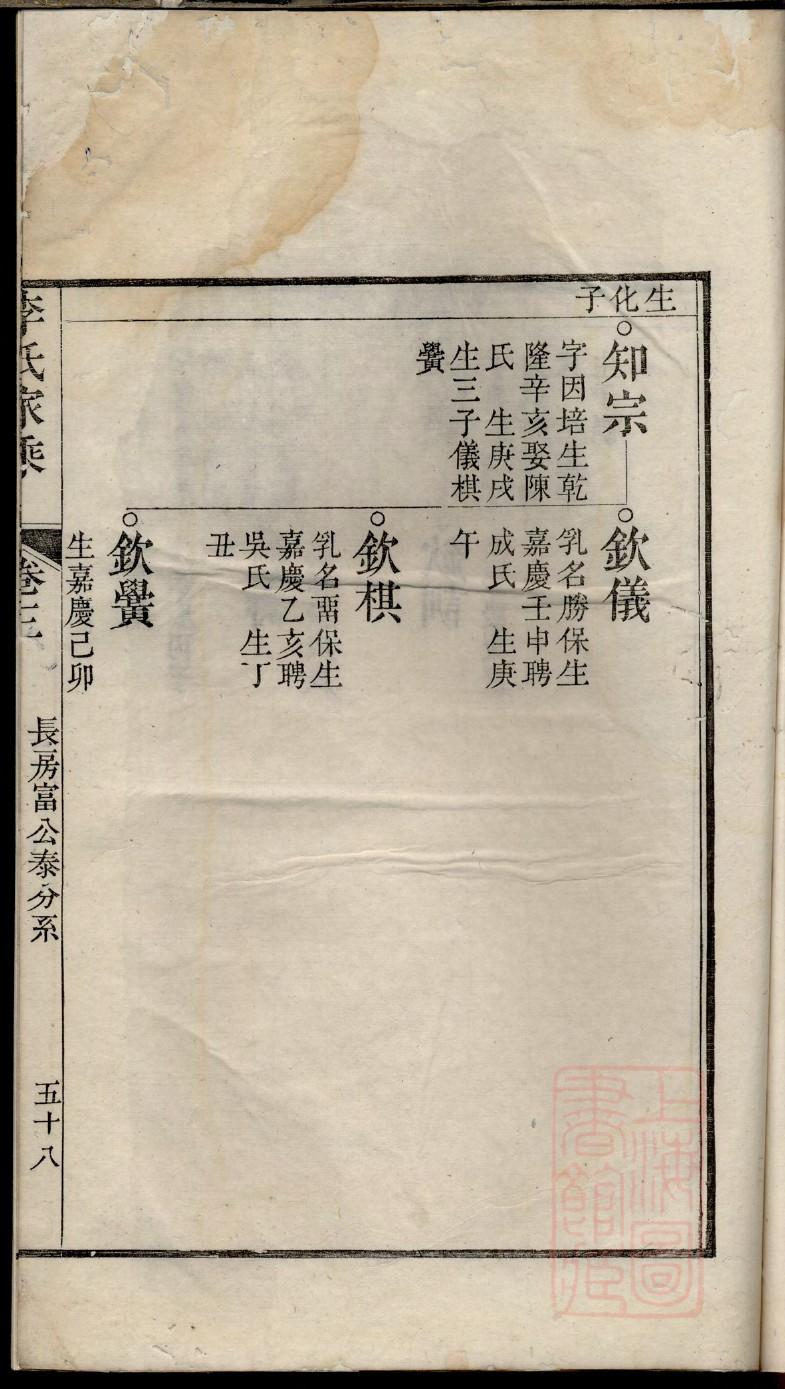 生化子
知宗
字因培生乾
隆辛亥娶陳
氏 生庚戌
生三子儀棋
黌
欽儀
乳名勝保生
嘉慶壬申聘
成氏 生庚
午
欽棋
乳名保生
嘉慶乙亥聘
吳氏 生丁
丑
欽黌
生嘉慶己卯
李氏家乘
卷三
長房富公泰分系
五十八
上海圖
書館藏